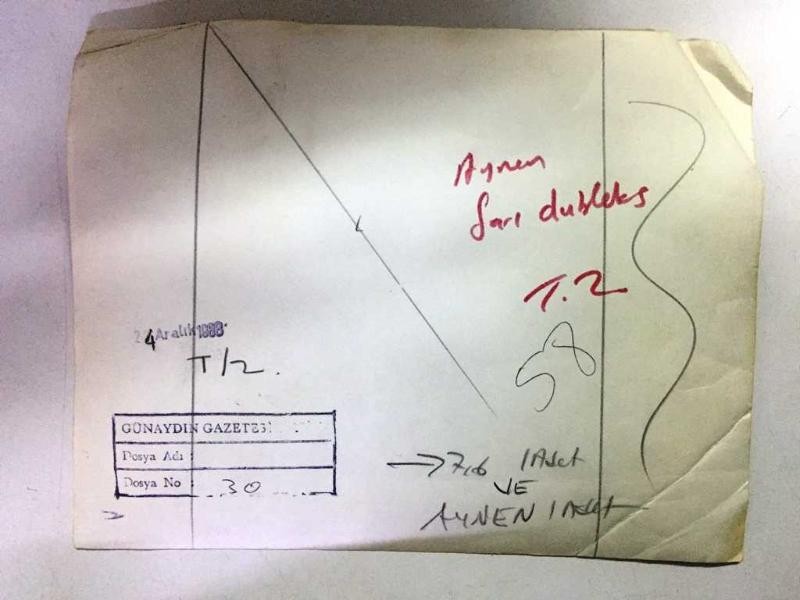 Aynen
Sarı dubleks
T.2
58
24 Aralık 1988
T/2.
GÜNAYDIN GAZETESİ
Dosya Adı
Dosya No 30
→ 7,6
VE
AYNEN